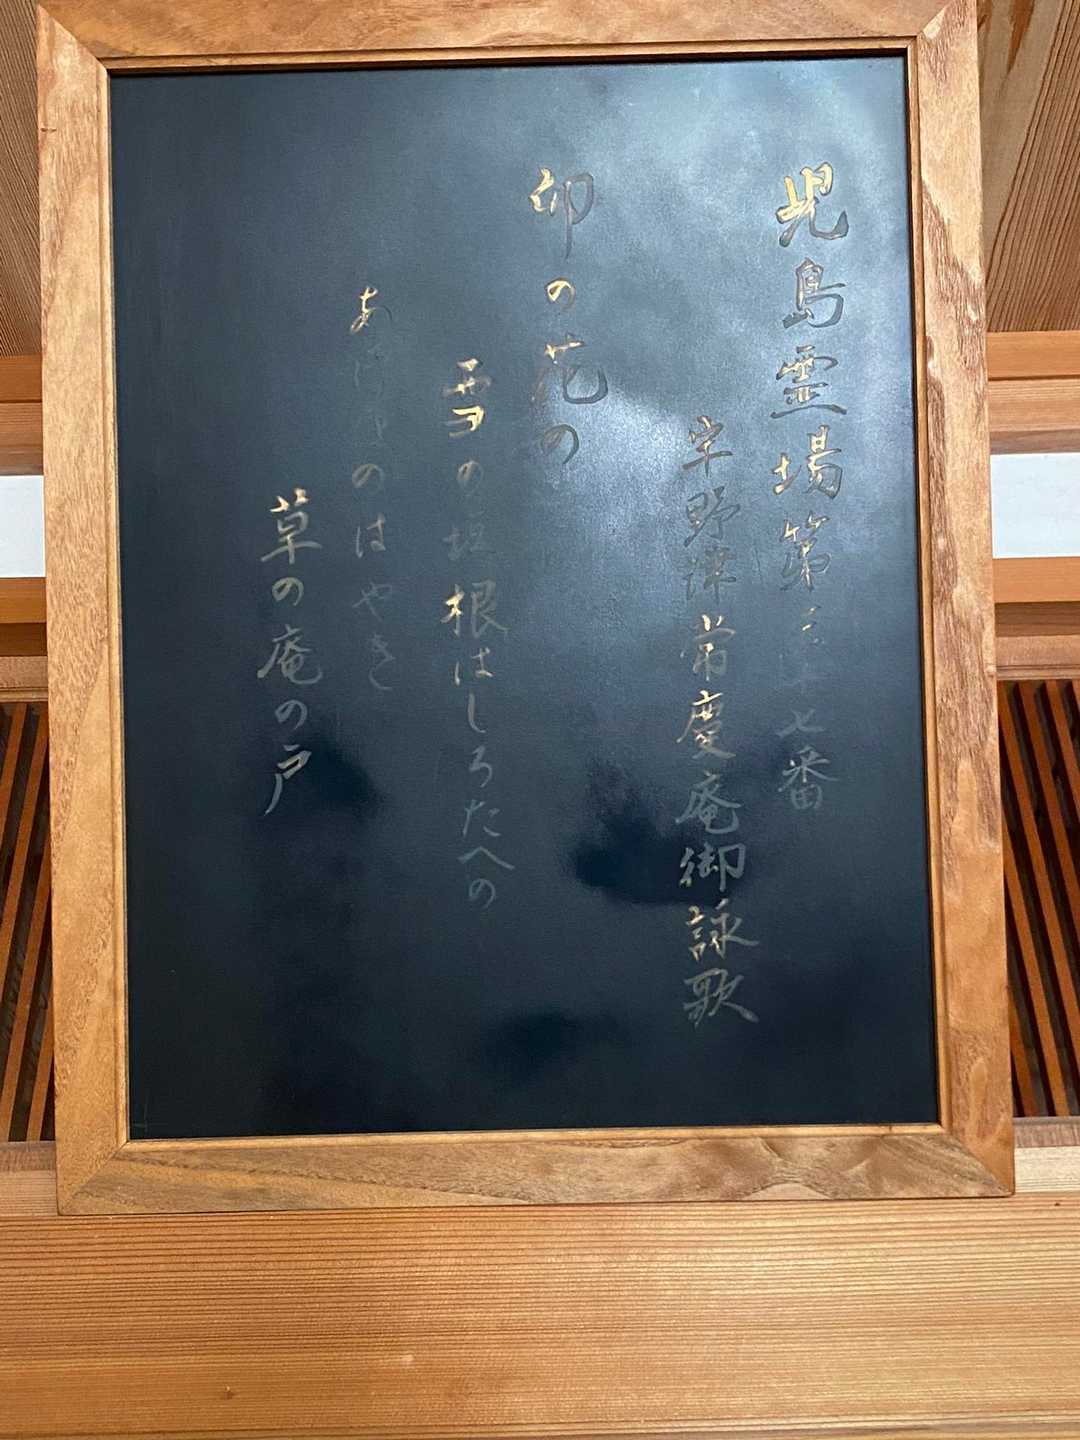 児島霊場第三十七番
宇野津常慶庵御詠歌
卯の花の
雪の垣根はしろたへの
あけぼのはやき
草の庵の戸